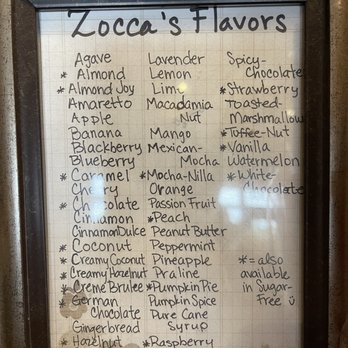 Zocca's Flavors
Agave
* Almond
* Almond Joy
Amaretto
Apple
Banana
Blackberry
Blueberry
* Caramel
Cherry
* Chocolate
Cinnamon
Cinnamon Dulce
* Coconut
* Creamy Coconut
* Creamy Hazelnut
* Creme Brulee
* German
Chocolate
Gingerbread
* Hazelnut
Lavender
Lemon
Lime
Macadamia
Nut
Mango
Mexican-
Mocha
* Mocha-Nilla
Orange
Passion Fruit
* Peach
Peanut Butter
Peppermint
Pineapple
Praline
* Pumpkin Pie
Pumpkin Spice
Pure Cane
Syrup
* Raspberry
Spicy-
Chocolate
* Strawberry
Toasted-
Marshmallow
* Toffee-Nut
* Vanilla
Watermelon
* White-
Chocolate
* = also
available
in Sugar-
Free